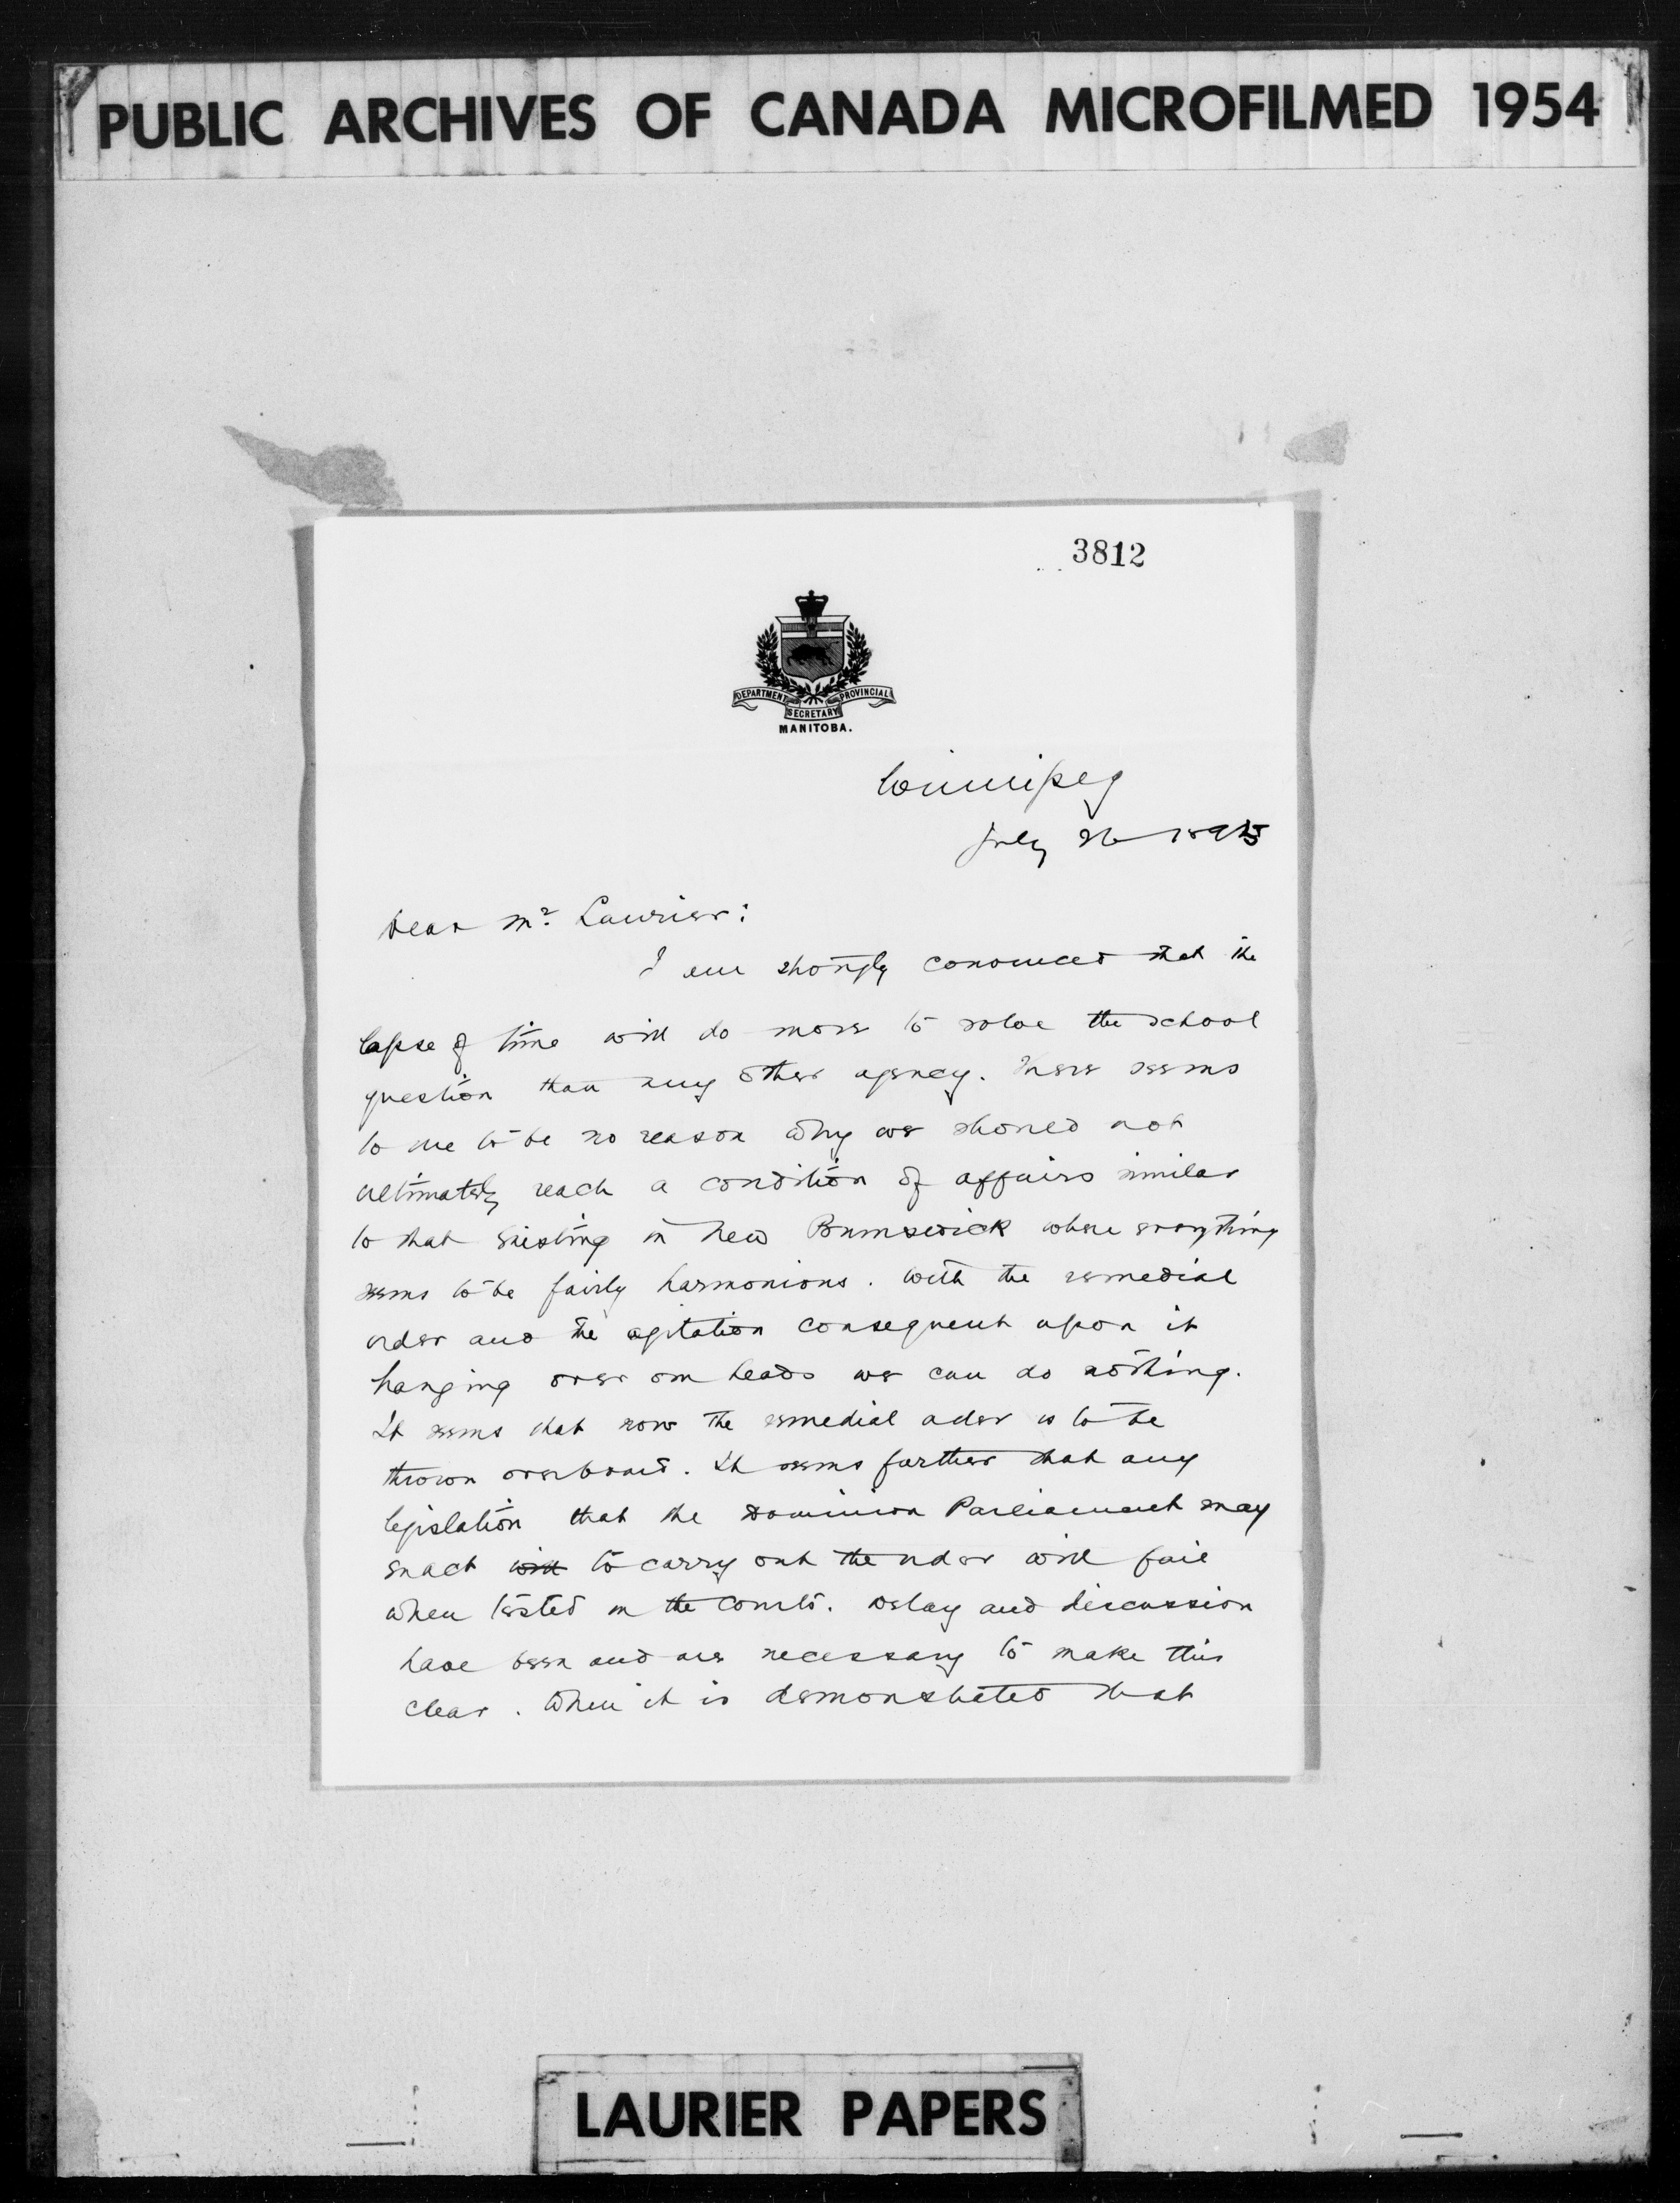 PUBLIC ARCHIVES OF CANADA MICROFILMED 1954
3812
DEPARTMENT PROVINCIAL
SECRETARY
MANITOBA.
Winnipeg
July 26 1895
Dear Mr. Laurier:
I am strongly convinced that the
lapse of time will do more to solve the school
question than any other agency. There seems
to me to be no reason why we should not
ultimately reach a condition of affairs similar
to that existing in New Brunswick where everything
seems to be fairly harmonious. With the remedial
order and the agitation consequent upon it
hanging over our heads we can do nothing.
It seems that now the remedial order is to be
thrown overboard. It seems further that any
legislation that the Dominion Parliament may
enact will to carry out the order will fail
when tested in the courts. Delay and discussion
have been and are necessary to make this
clear. When it is demonstrated that
LAURIER PAPERS